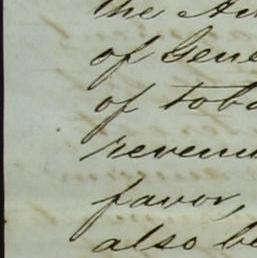 the Au
of Gene
of toba
revenu
favor,
also be